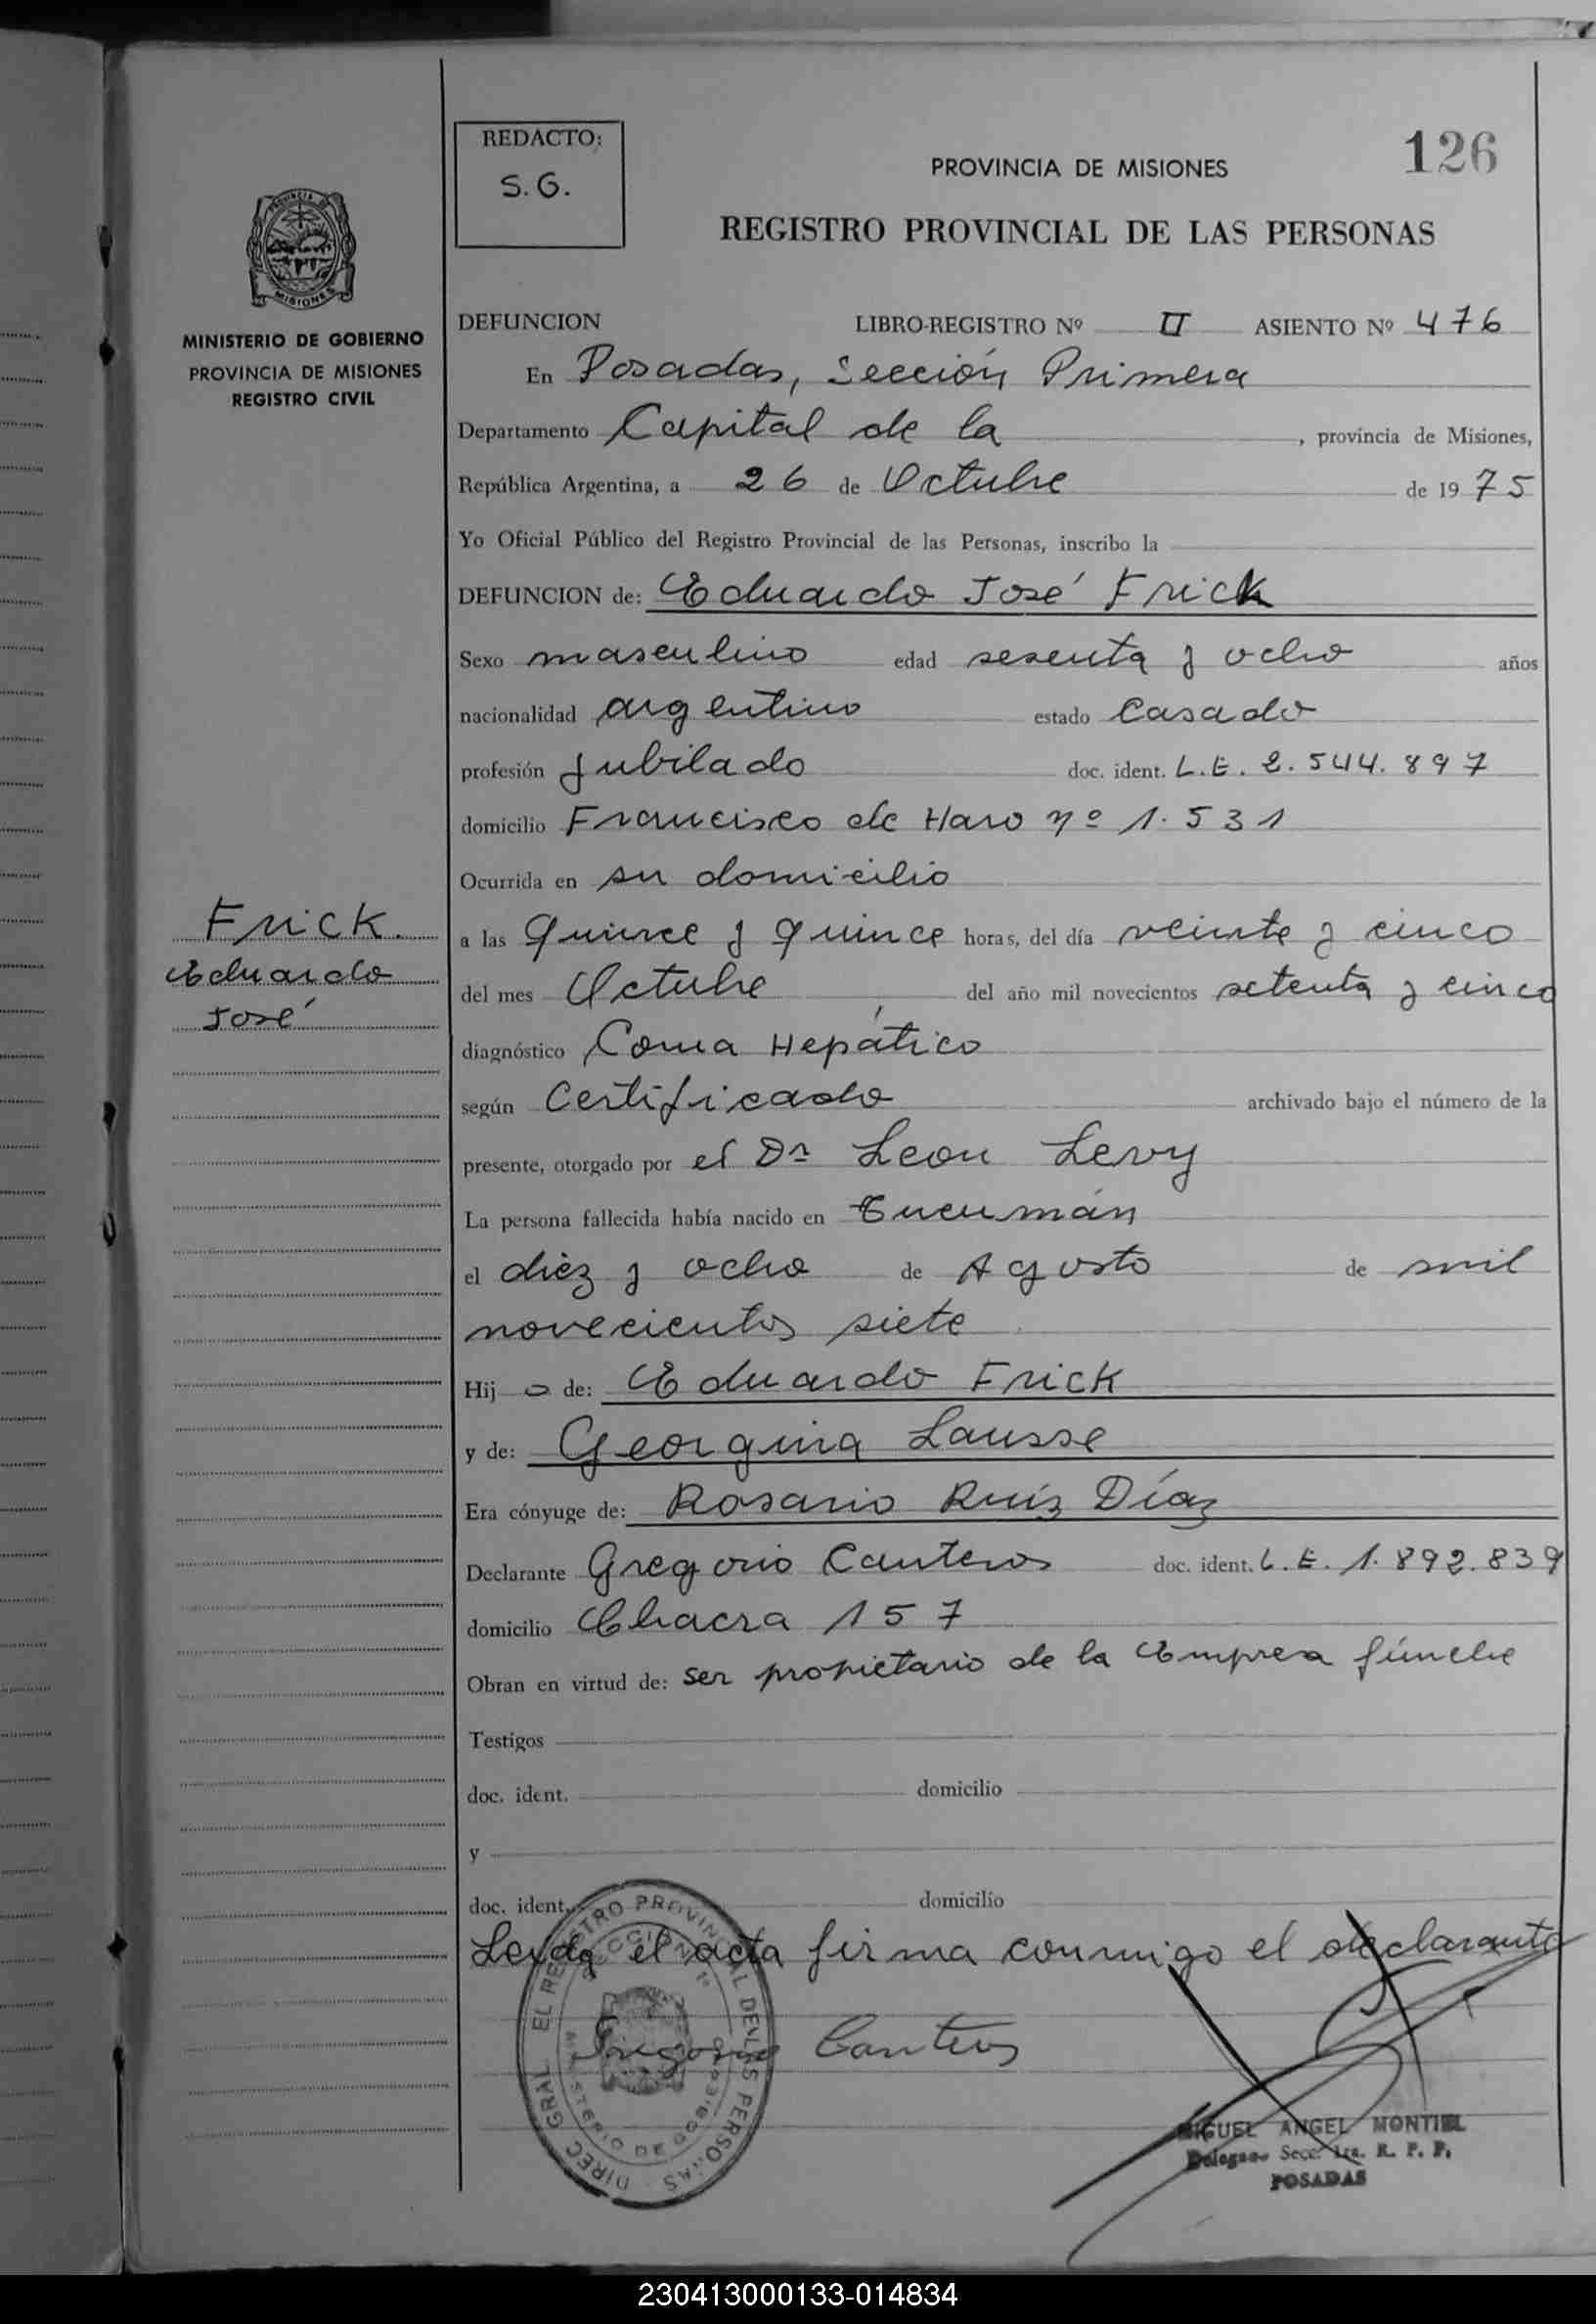 REDACTO:
S. G.
126
PROVINCIA DE MISIONES
REGISTRO PROVINCIAL DE LAS PERSONAS
MISIONES
MINISTERIO DE GOBIERNO
PROVINCIA DE MISIONES
REGISTRO CIVIL
DEFUNCION LIBRO-REGISTRO Nº II ASIENTO Nº 476
En Posadas, Sección Primera
Departamento Capital de la , provincia de Misiones,
República Argentina, a 26 de Octubre de 1975
Yo Oficial Público del Registro Provincial de las Personas, inscribo la
DEFUNCION de: Eduardo José Frick
Sexo masculino edad sesenta y ocho años
nacionalidad argentino estado Casado
profesión jubilado doc. ident. L.E. 2.544.897
domicilio Francisco de Haro nº 1.531
Ocurrida en su domicilio
Frick.
Eduardo
José
a las Quince y quince horas, del día veinte y cinco
del mes Octubre del año mil novecientos setenta y cinco
diagnóstico Coma Hepático
según Certificado archivado bajo el número de la
presente, otorgado por el Dr Leon Levy
La persona fallecida había nacido en Tucumán
el diez y ocho de Agosto de mil
novecientos siete
Hijo de: Eduardo Frick
y de: Georgina Lausse
Era cónyuge de: Rosario Ruíz Díaz
Declarante Gregorio Canteros doc. ident. L.E. 1.892.839
domicilio Chacra 157
Obran en virtud de: ser propietario de la Empresa fúnebre
Testigos
doc. ident. domicilio
y
doc. ident. domicilio
Leída el acta firma conmigo el declarante
Gregorio Canteros
DIREC. GRAL. EL REGISTRO PROVINCIAL DE LAS PERSONAS
SECCION 1º
MINISTERIO DE GOBIERNO
MIGUEL ANGEL MONTIEL
Delegado Secc. 1ra. R. P. P.
POSADAS
230413000133-014834